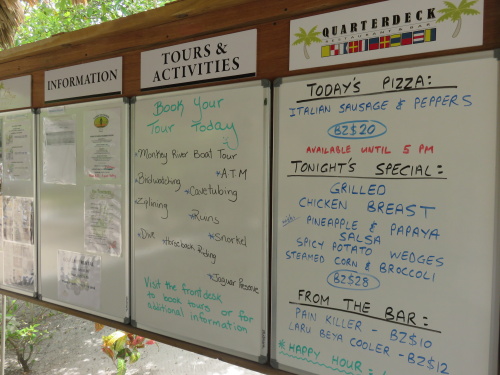 INFORMATION
TOURS &
ACTIVITIES
Book Your
Tour Today
*Monkey River Boat Tour
*ATM
*Birdwatching
*Cavetubing
*Ziplining
*Ruins
*Dive
*Snorkel
Horseback Riding
*Jaguar Reserve
Visit the frontdesk
to book tours or for
additional information
QUARTERDECK
RESTAURANT & BAR
TODAY'S PIZZA:
ITALIAN SAUSAGE & PEPPERS
BZ$20
AVAILABLE UNTIL 5 PM
TONIGHT'S SPECIAL:
GRILLED
CHICKEN BREAST
w/ PINEAPPLE & PAPAYA
SALSA
SPICY POTATO WEDGES
STEAMED CORN & BROCCOLI
BZ$28
FROM THE BAR:
PAIN KILLER - BZ$10
LARU BEYA COOLER - BZ$12
*HAPPY HOUR: